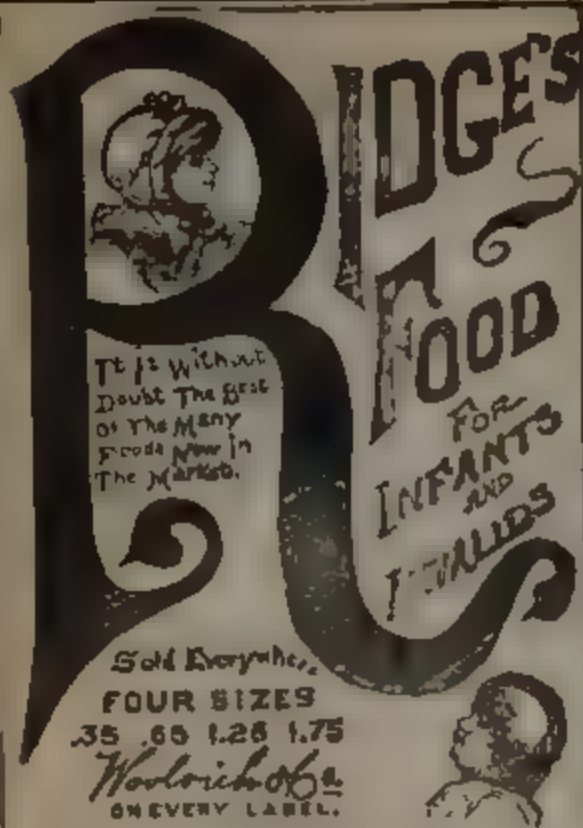 RIDGE'S
FOOD
FOR
INFANTS
AND
INVALIDS
It Is Without
Doubt The Best
Of The Many
Foods Now In
The Market.
Sold Everywhere
FOUR SIZES
.35 .65 1.25 1.75
Woolrich & Co
ON EVERY LABEL.